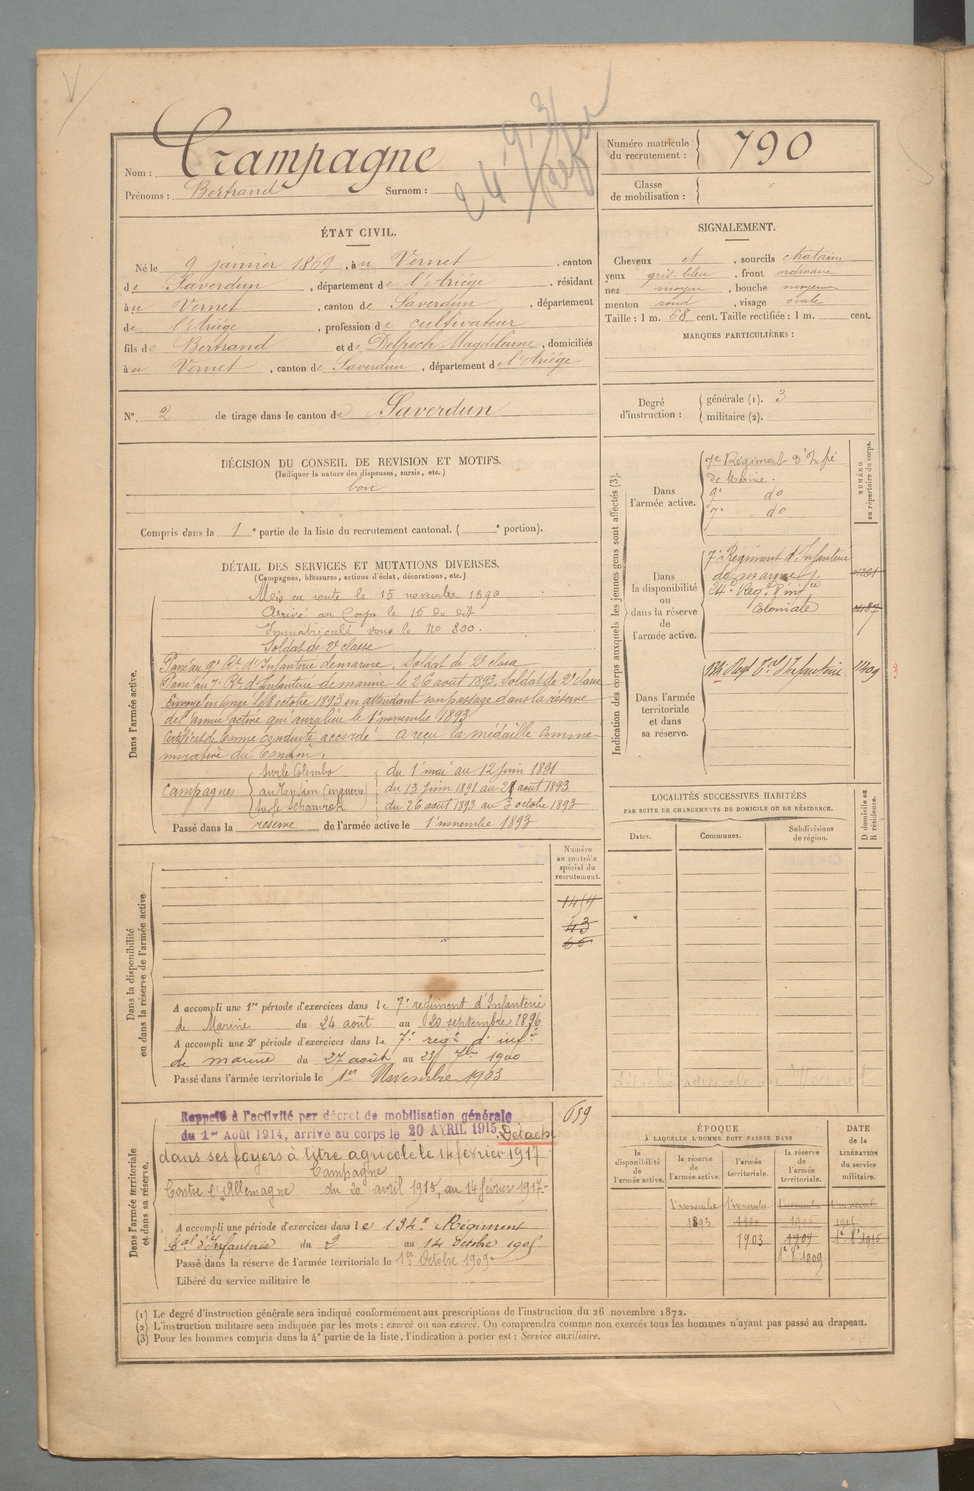 Nom : Crampagne
Prénoms : Bertrand Surnom :
Numéro matricule du recrutement : 790
Classe de mobilisation :
ÉTAT CIVIL.
Né le 9 janvier 1869, à u Vernet, canton
de Saverdun, département de l'Ariège, résidant
à u Vernet, canton de Saverdun, département
de l'Ariège, profession de cultivateur
fils de Bertrand et de Delpech Magdeleine, domiciliés
à u Vernet, canton de Saverdun, département de l'Ariège
N°. 2 de tirage dans le canton de Saverdun
SIGNALEMENT.
Cheveux et, sourcils châtains
yeux gris-bleu, front ordinaire
nez moyen, bouche moyenne
menton rond, visage ovale
Taille : 1 m. 68 cent. Taille rectifiée : 1 m. cent.
MARQUES PARTICULIÈRES :
Degré d'instruction : générale (1). 3
militaire (2).
DÉCISION DU CONSEIL DE REVISION ET MOTIFS.
(Indiquer la nature des dispenses, sursis, etc.)
bon
Compris dans la 1e partie de la liste du recrutement cantonal. ( e portion).
DÉTAIL DES SERVICES ET MUTATIONS DIVERSES.
(Campagnes, blessures, actions d'éclat, décorations, etc.)
Dans l'armée active.
Mis en route le 15 novembre 1890
Arrivé au Corps le 16 du dit
Immatriculé sous le No 800.
Soldat de 2e classe
Passé au 9e Rt d'Infanterie de marine, Soldat de 2e classe
Passé au 7e Rt d'Infanterie de marine le 26 août 1893, Soldat de 2e classe
Envoyé en congé le 8 octobre 1893 en attendant son passage dans la réserve
de l'armée active qui aura lieu le 1er novembre 1893
Certificat de bonne conduite accordé. A reçu la médaille commé-
morative du Tonkin.
Campagnes
Sur le Colombo du 1er mai au 12 juin 1891
au Tonkin (en guerre) du 13 juin 1891 au 25 août 1893
sur le Schamrok du 26 août 1893 au 3 octobre 1893
Passé dans la réserve de l'armée active le 1er novembre 1893
Indication des corps auxquels les jeunes gens sont affectés (3).
NUMÉRO au répertoire du corps.
Dans l'armée active.
7e Régiment d'Infie
de Marine.
9e do
7e do
Dans la disponibilité ou dans la réserve de l'armée active.
7e Régiment d'Infanterie
de marine
24e Reg. d'infie
Coloniale
Dans l'armée territoriale et dans sa réserve.
134 Regt tal d'Infanterie
LOCALITÉS SUCCESSIVES HABITÉES
PAR SUITE DE CHANGEMENTS DE DOMICILE OU DE RÉSIDENCE.
Dates. Communes. Subdivisions de région. D domicile ou R résidence.
Dans la disponibilité ou dans la réserve de l'armée active
Numéro au contrôle spécial du recrutement.
43
A accompli une 1re période d'exercices dans le 7e régiment d'Infanterie
de Marine du 24 août au 20 septembre 1896
A accompli une 2e période d'exercices dans le 7e régt d'infie
de marine du 27 août au 23 7bre 1900
Passé dans l'armée territoriale le 1er Novembre 1903
Dans l'armée territoriale et dans sa réserve.
659
Rappelé à l'activité par décret de mobilisation générale
du 1er Août 1914, arrivé au corps le 20 AVRIL 1915. Détaché
dans ses foyers à titre agricole le 14 février 1917
Campagne
Contre l'Allemagne du 20 avril 1915, au 14 février 1917.
A accompli une période d'exercices dans le 134e Régiment
tal d'Infanterie du 2 au 14 octobre 1905
Passé dans la réserve de l'armée territoriale le 1er Octobre 1909
Libéré du service militaire le
ÉPOQUE
À LAQUELLE L'HOMME DOIT PASSER DANS
la disponibilité de l'armée active.
la réserve de l'armée active.
l'armée territoriale.
la réserve de l'armée territoriale.
DATE de la LIBÉRATION du service militaire.
1er novembre 1893
1er novembre
1903
1er 8bre 1909
(1) Le degré d'instruction générale sera indiqué conformément aux prescriptions de l'instruction du 26 novembre 1872.
(2) L'instruction militaire sera indiquée par les mots : exercé ou non exercé. On comprendra comme non exercés tous les hommes n'ayant pas passé au drapeau.
(3) Pour les hommes compris dans la 4e partie de la liste, l'indication à porter est : Service auxiliaire.